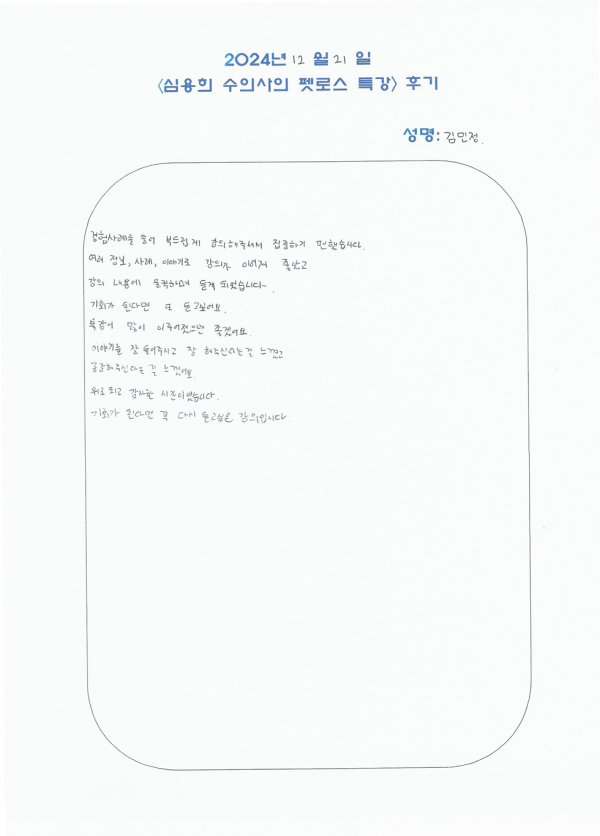 2024년 12 월 21 일
<심용희 수의사의 펫로스 특강> 후기
성명: 김민정.
경험사례를 들어 부드럽게 강의해주셔서 집중하기 편했습니다.
여러 정보, 사례, 이야기로 강의가 이어져 좋았고
강의 내용에 울컥하며 듣게 되었습니다~.
기회가 된다면 또 듣고싶어요.
특강이 많이 이루어졌으면 좋겠어요.
이야기를 잘 들어주시고 잘 해주신다는걸 느꼈고
공감해주신다는 걸 느꼈어요.
위로 되고 감사한 시간이였습니다.
기회가 된다면 꼭 다시 듣고싶은 강의입니다.